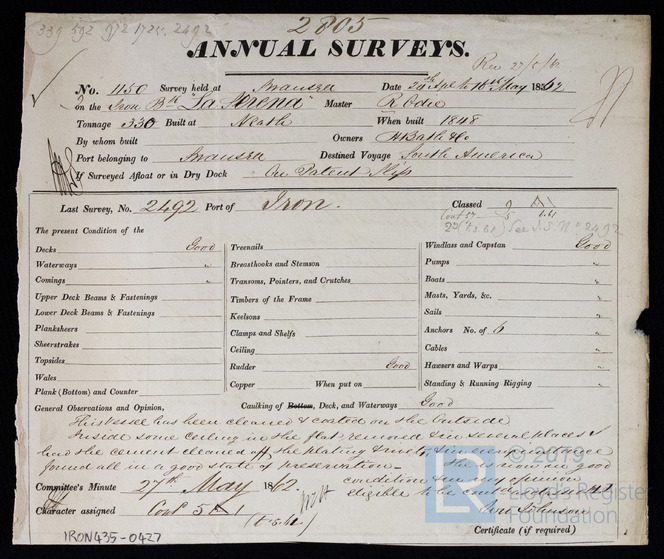 2805
339 592 972 1725 2492
ANNUAL SURVEYS.
Rec 27/5/62
No. 1150 Survey held at Swansea Date 28th Apl to 16th May 1862
on the Iron Bk "La Serena" Master R Bodie
Tonnage 330 Built at Neath When built 1848
By whom built Owners H Bath & Co
Port belonging to Swansea Destined Voyage South America
If Surveyed Afloat or in Dry Dock On Patent Slip
Last Survey, No. 2492 Port of Iron. Classed A1
Cont 57 5 6.61
See I.S. No 2492
The present Condition of the
Decks Good
Waterways "
Comings "
Upper Deck Beams & Fastenings
Lower Deck Beams & Fastenings
Planksheers
Sheerstrakes
Topsides
Wales
Plank (Bottom) and Counter
Treenails
Breasthooks and Stemson
Transoms, Pointers, and Crutches
Timbers of the Frame
Keelsons
Clamps and Shelfs
Ceiling
Rudder Good
Copper When put on
Windlass and Capstan Good
Pumps "
Boats "
Masts, Yards, &c. "
Sails "
Anchors No. of 6 "
Cables "
Hawsers and Warps "
Standing & Running Rigging "
General Observations and Opinion, Caulking of Bottom, Deck, and Waterways Good
This vessel has been cleaned & coated on the Outside
Inside some ceiling in the flat removed & in several places
had the cement cleaned off the plating & rivets, & in every
found all in a good state of preservation - She is now in good
condition & in my opinion
eligible to be continued
Committee's Minute 27th May 1862.
Character assigned Cont 5 A1
Certificate (if required)
IRON435-0427
© 2019
LR
Lloyd's Register
Foundation